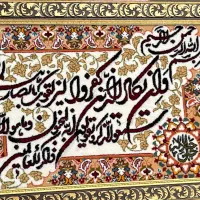 بسم الله الرحمن الرحيم
وان يكاد الذين كفروا ليزلقونك بابصا
سمعوا الذكر ويقولون انه لمجنون وما هو الا
ذكر للعالمين